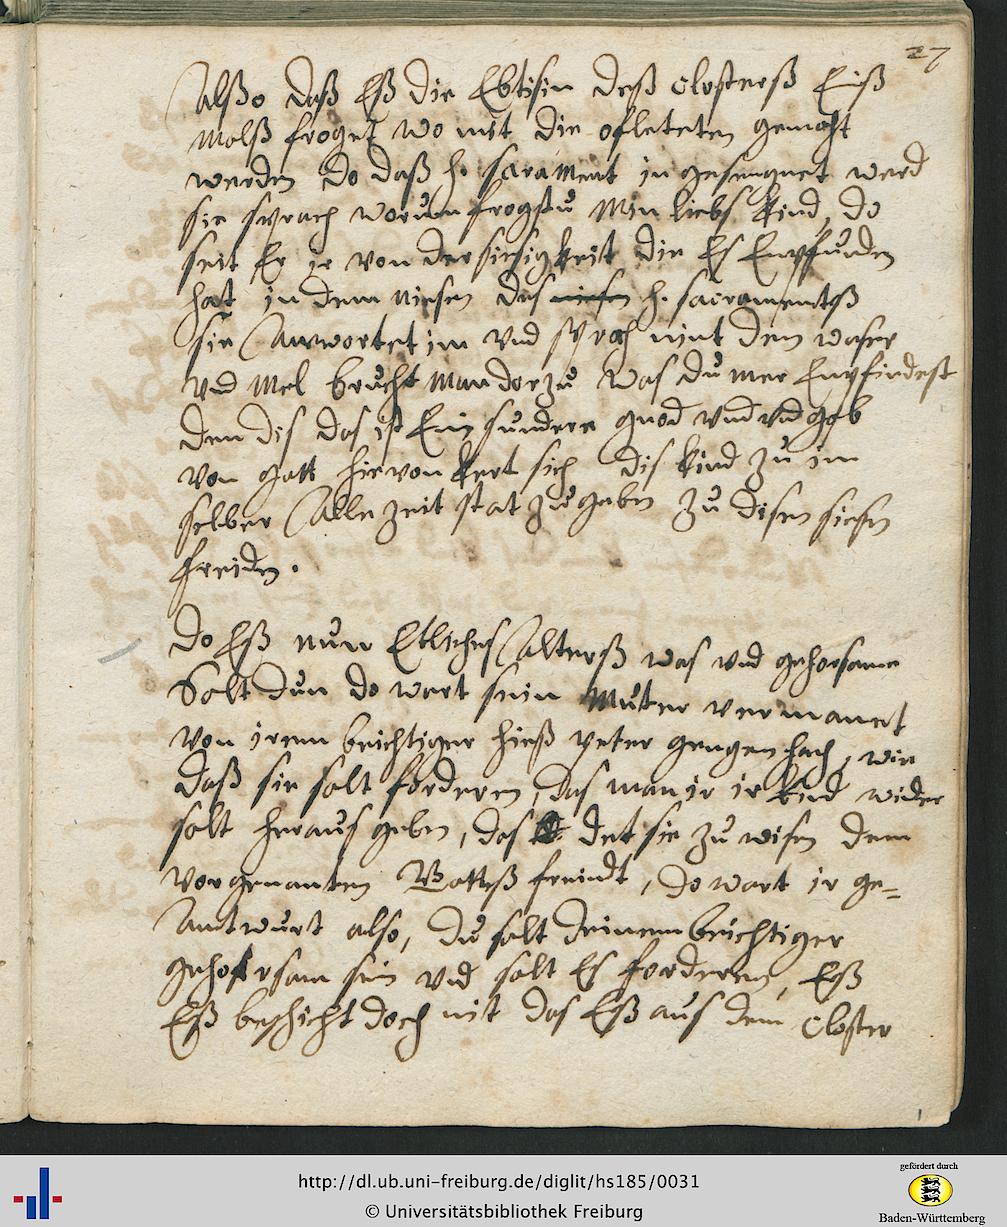 27
Alßo daß Eß die Ebtisin deß closterß Einß
Molß froget wo mit die ofleteten gemaht
werden do daß h. sacrament in gesengnet werd
sie sprach worum frogstu Min liebs kind, do
seit Er ir von der siesigkeit die Es Enpfunden
hat in dem niesen des niesen h. sacramentß
sie Anwortet im vnd sprach nint den waser
vnd Mel brucht man dorzu was du mer Enpfindest
den dis das ist Ein sundere gnod vnd vnd gob
von gott hievon kert sich dis kind zu im
selber Alle zeit stat zu geben zu disen siesen
freiden.
do Eß nun Etliches Alterß was vnd gehorsame
Solt dun do wart sein Muter vermanet
von irem beichtiger hieß peter gengenbach, wie
daß sie solt forderen, das man ir ir kind wider
solt heraus geben, das det sie zu wisen dem
vorgenanten Gotteß freindt, do wart ir ge=
Antwurt also, du solt deinem beichtiger
gehorsam sein vnd solt Es forderen, Eß
Eß beschicht doch nit das Eß aus dem closter
http://dl.ub.uni-freiburg.de/diglit/hs185/0031
© Universitätsbibliothek Freiburg
gefördert durch
Baden-Württemberg